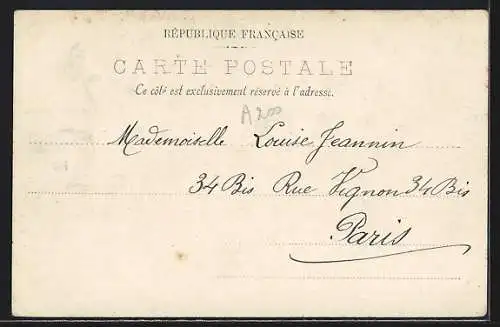 RÉPUBLIQUE FRANÇAISE
CARTE POSTALE
Ce côté est exclusivement réservé à l'adresse.
A200
Mademoiselle Louise Jeannin
34 Bis Rue Vignon 34 Bis
Paris